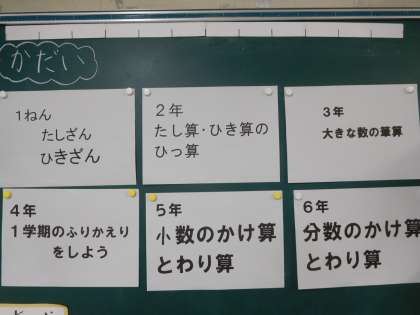 かだい
1ねん
たしざん
ひきざん
2年
たし算・ひき算の
ひっ算
3年
大きな数の筆算
4年
1学期のふりかえり
をしよう
5年
小数のかけ算
とわり算
6年
分数のかけ算
とわり算